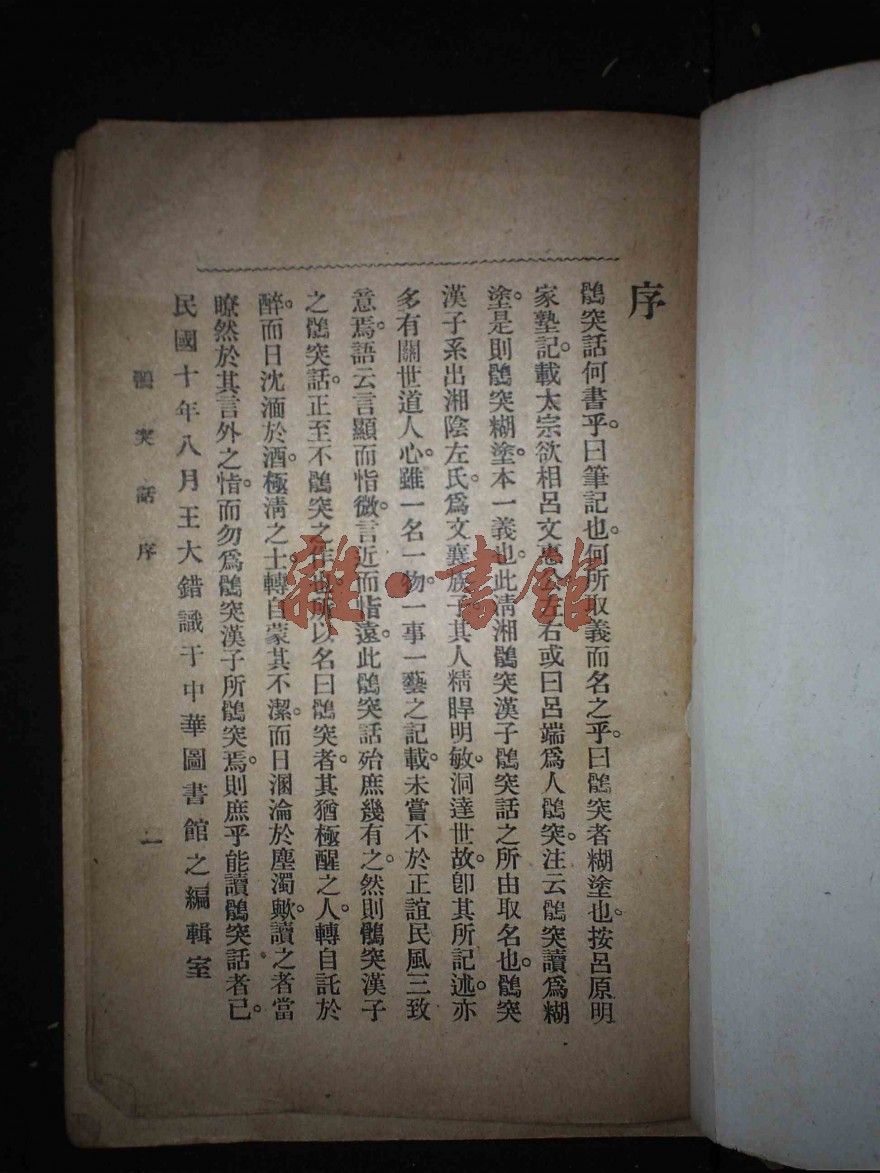 序
鶻突話何書乎。曰筆記也。何所取義而名之乎。曰鶻突者糊塗也。按呂原明
家塾記。載太宗欲相呂文惠公左右或曰呂端爲人鶻突。注云鶻突讀爲糊
塗。是則鶻突糊塗。本一義也。此淸湘鶻突漢子鶻突話之所由取名也。鶻突
漢子系出湘陰左氏。爲文襄族子其人精眀明敏。洞達世故。卽其所記述。亦
多有關世道人心。雖一名一物。一事一藝之記載。未嘗不於正誼民風三致
意焉。語云言顯而恉微。言近而恉遠。此鶻突話殆庶幾有之。然則鶻突漢子
之鶻突話。正至不鶻突之作也。所以名曰鶻突者。其猶極醒之人。轉自託於
醉。而日沈湎於酒。極淸之士。轉自蒙其不潔。而日溷淪於塵濁歟。讀之者當
瞭然於其言外之恉。而勿爲鶻突漢子所鶻突焉。則庶乎能讀鶻突話者已。
民國十年八月王大錯識于中華圖書館之編輯室
鶻突話序
一
雜·書館